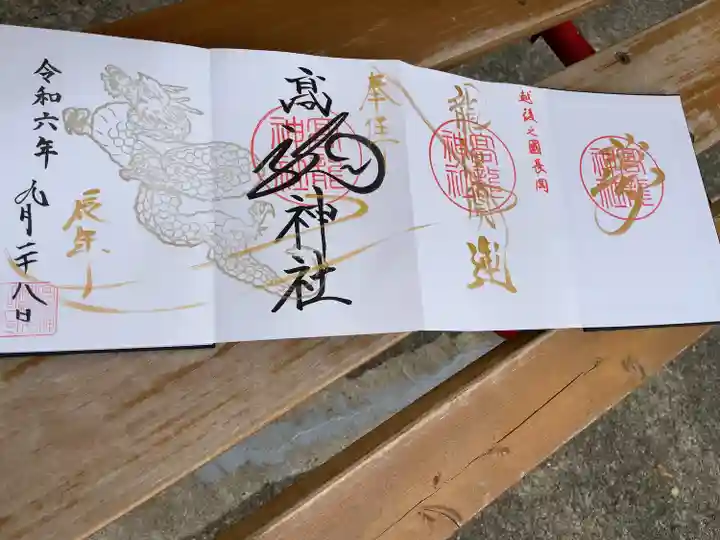 越後之國長岡
夢
高龍神社
龍
運
高龍神社
奉拝
髙龍神社
高龍神社
辰年
令和六年
九月二十八日